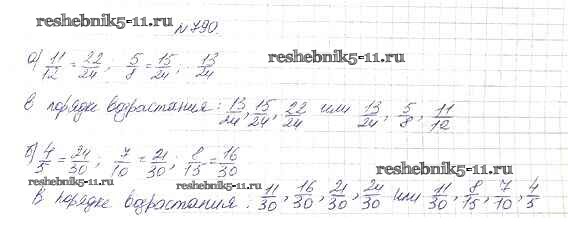 reshebnik5-11.ru
№790.
reshebnik5-11.ru
а) 11/12 = 22/24; 5/8 = 15/24; 13/24
в порядке возрастания: 13/24, 15/24, 22/24 или 13/24, 5/8, 11/12
б) 4/5 = 24/30; 7/10 = 21/30; 8/15 = 16/30
reshebnik5-11.ru
reshebnik5-11.ru reshebnik5-11.ru
В порядке возрастания: 11/30, 16/30, 21/30, 24/30 или 11/30, 8/15, 7/10, 4/5